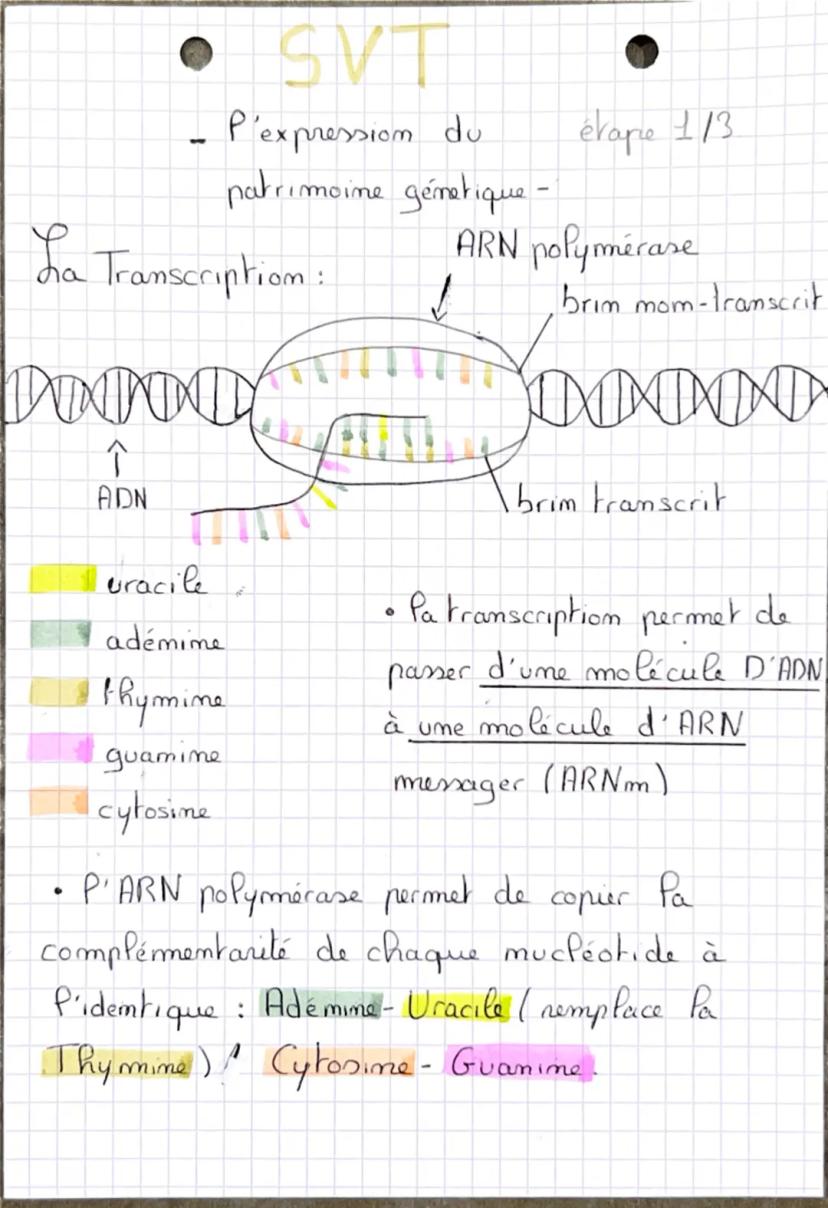 SVT
- l'expression du
étape 1/3
patrimoine génétique -
La Transcription :
ARN polymérase
brin non-transcrit
ADN
brin transcrit
uracile
adénine
thymine
guanine
cytosine
• la transcription permet de
passer d'une molécule D'ADN
à une molécule d'ARN
messager (ARNm)
• l'ARN polymérase permet de copier la
complémentarité de chaque nucléotide à
l'identique : Adénine - Uracile (remplace la
Thymine) / Cytosine - Guanine.